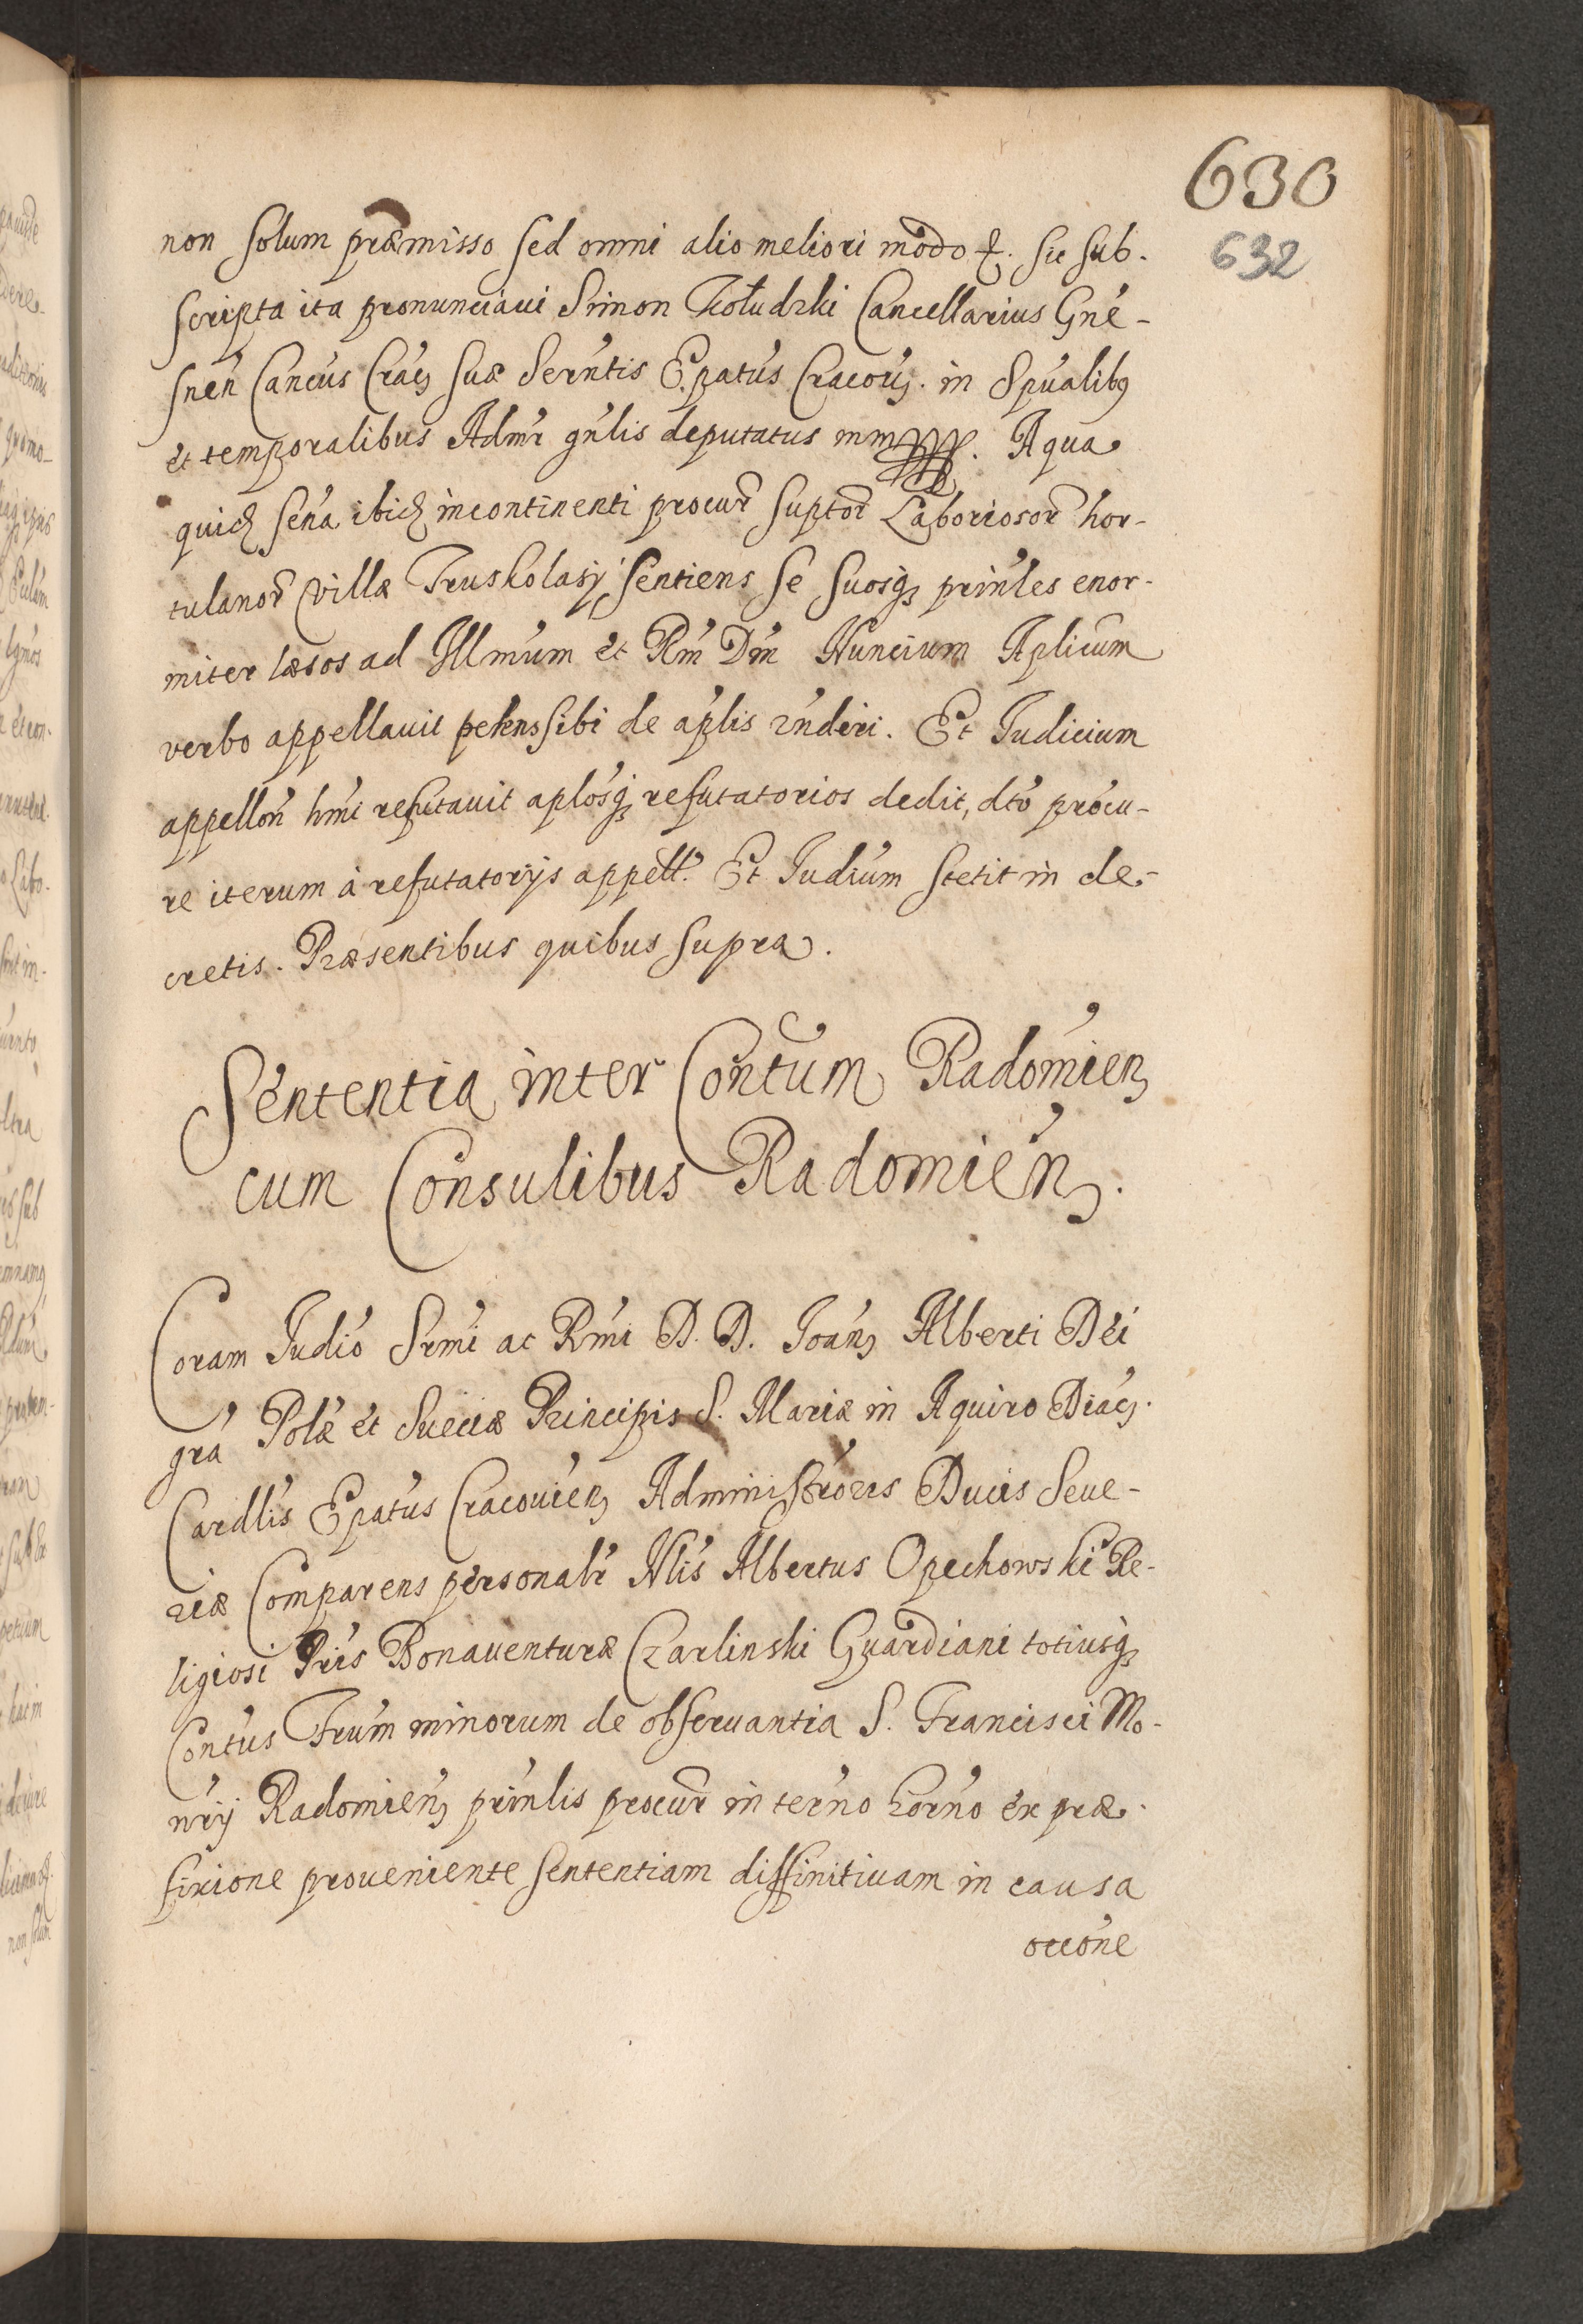 630
632
non solum præmisso sed omni alio meliori modo &. sic sub-
scripta ita pronunciavi Simon Kołudzki Cancellarius Gne-
snen Cancus Crac; suæ Serntis Epatus Cracou; in Spualib9
et temporalibus Admr gnlis deputatus mm. A qua
quid; sena ibid; incontinenti procur suptor Laboriosor hor-
tulanor villæ Truskolasÿ sentiens se suosq; prinles enor-
miter læsos ad Illmum et Rm Dm Nuncium Aplicum
verbo appellauit petens sibi de aplis rnderi. Et Judicium
appellon hmi refutauit aplosq; refutatorios dedit, dto procu-
re iterum à refutatorijs appell. Et Judium stetit in de-
cretis. Præsentibus quibus supra.
Sententia inter Contum Radomien;
cum Consulibus Radomien;.
Coram Judio Srmi ac Rmi D. D. Joan; Alberti Dei
gra Polæ et Sueciæ Principis S. Mariæ in Aquiro Diac;.
Cardlis Epatus Cracouien; Administroris Ducis Seue-
riæ Comparens personalr Nlis Albertus Opechowski Re-
ligiosi Pris Bonauenturæ Czarlinski Guardiani totiusq;
Contus Frum minorum de obseruantia S. Francisci Mo-
nrij Radomien; prinlis procur in terno horno ex præ-
fixione proueniente sententiam diffinitiuam in causa
occone